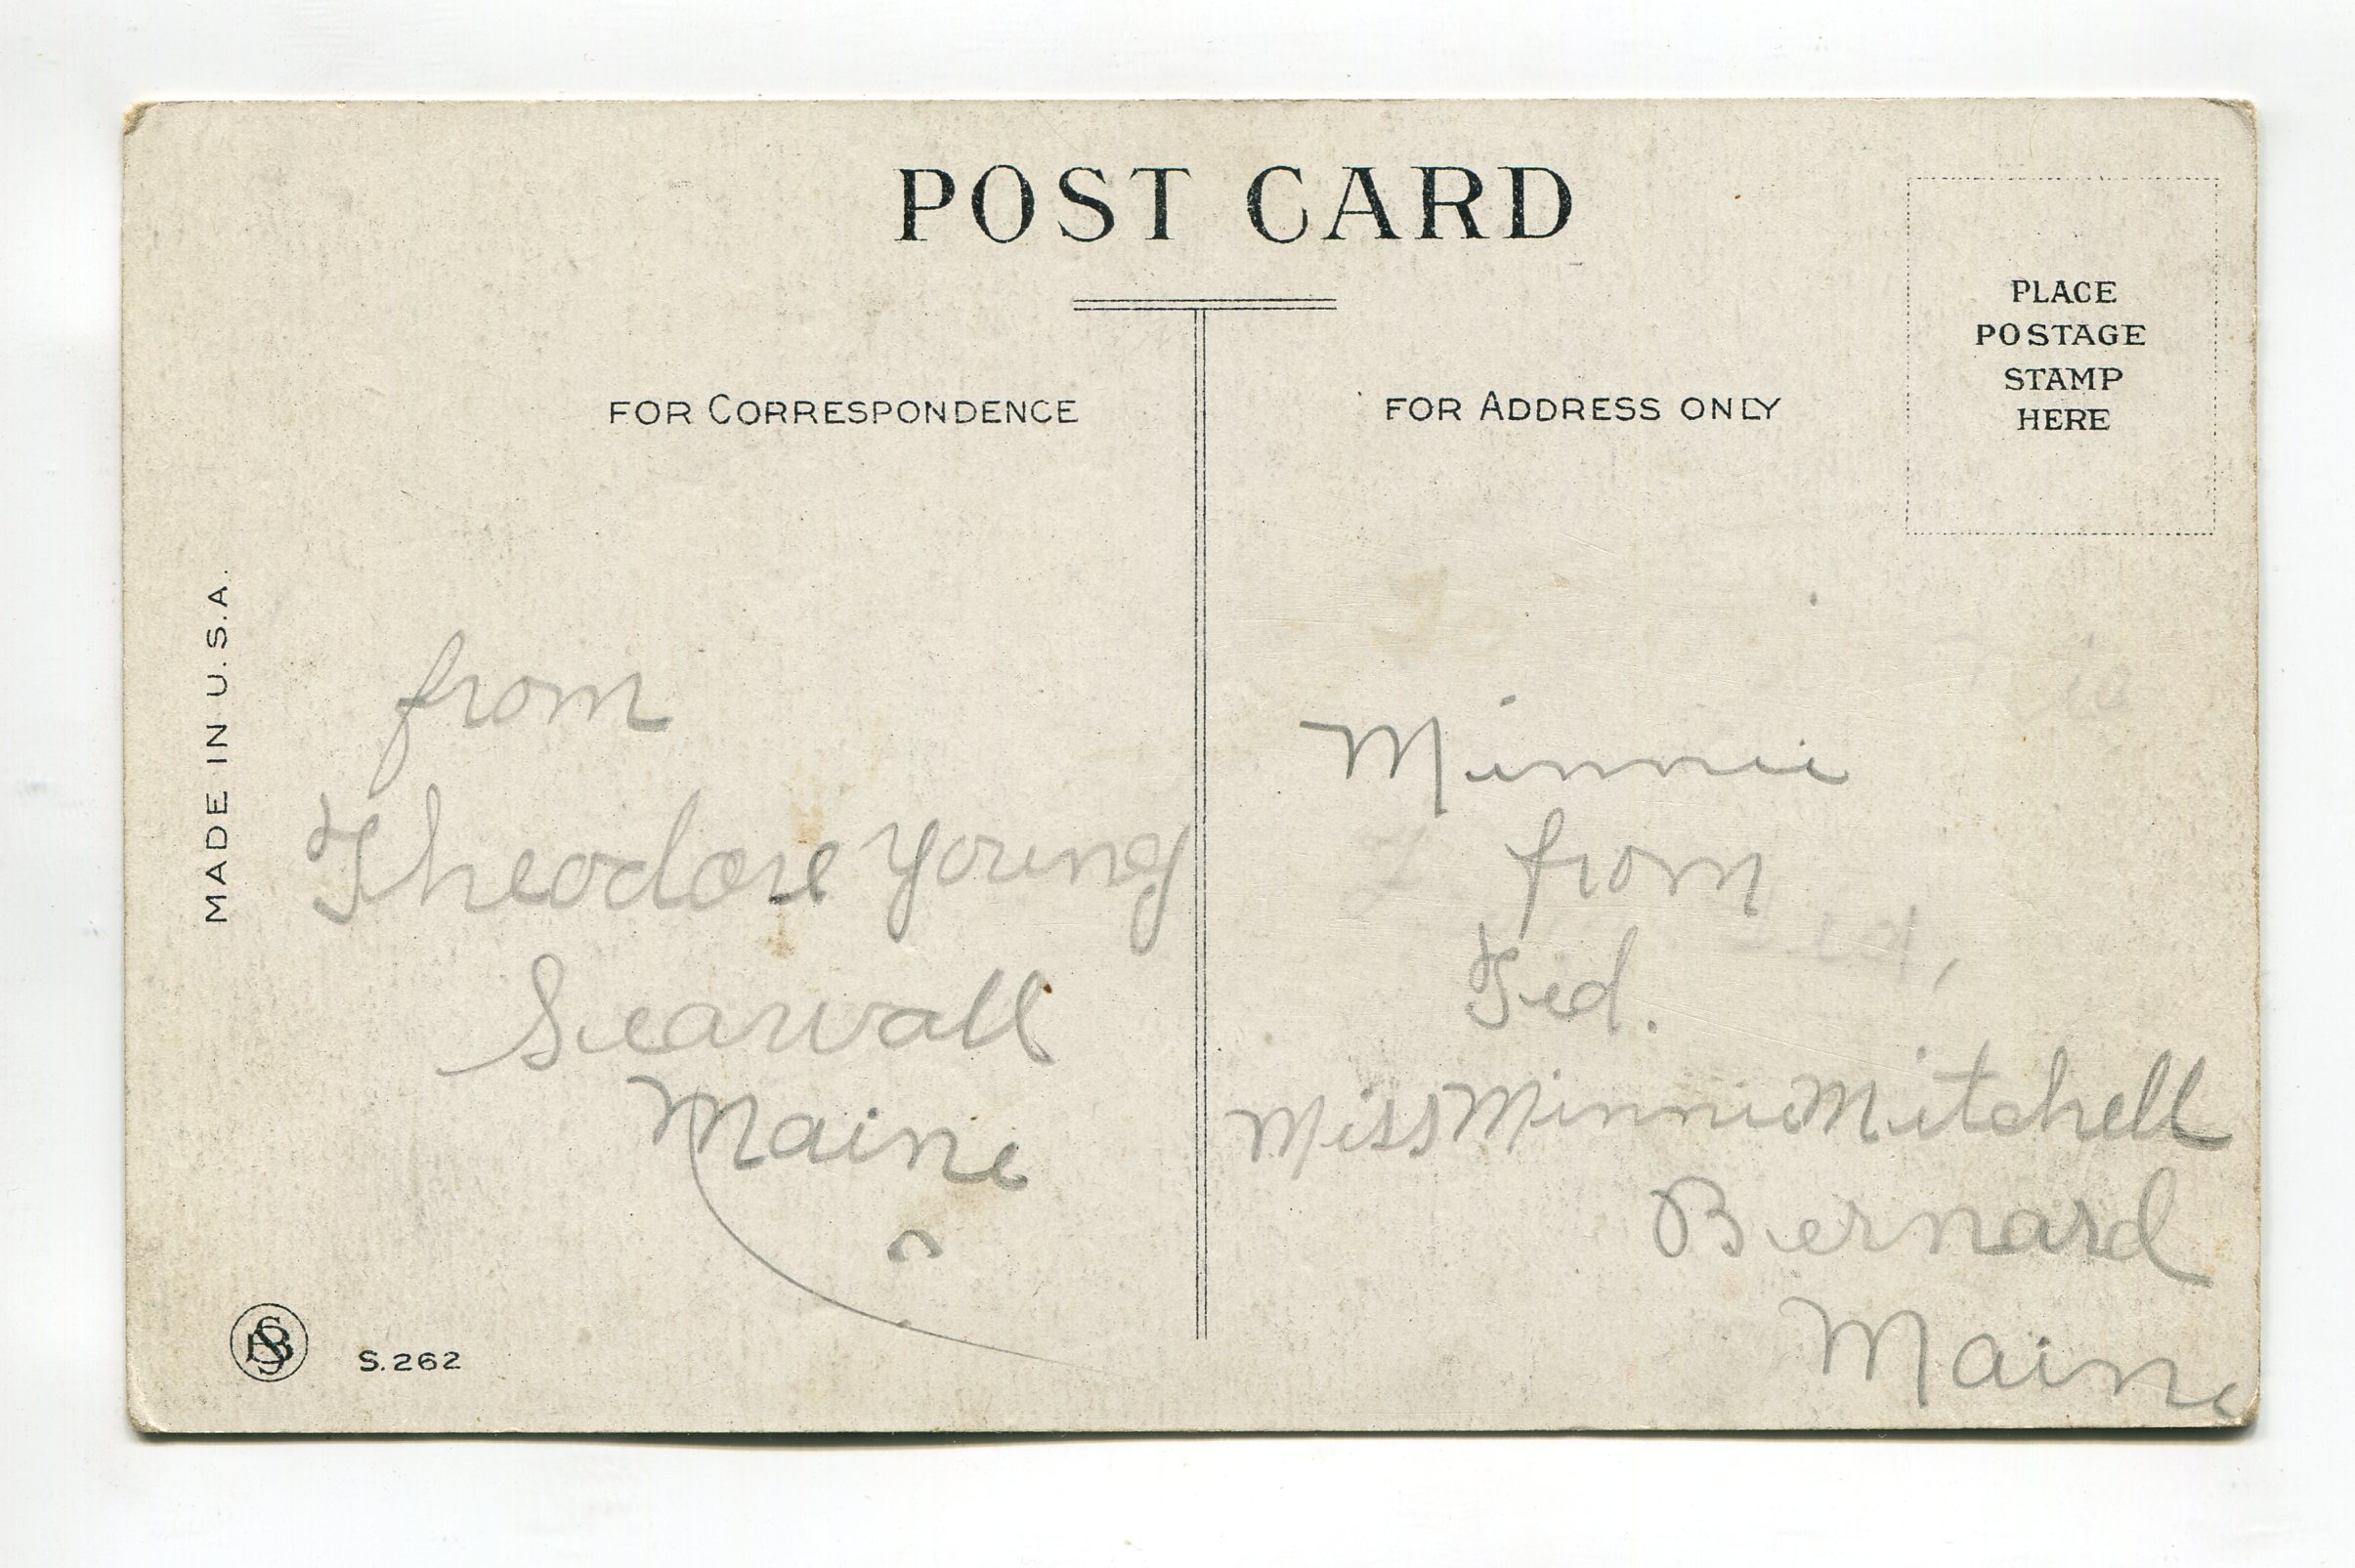 POST CARD
FOR CORRESPONDENCE
FOR ADDRESS ONLY
PLACE
POSTAGE
STAMP
HERE
MADE IN U.S.A.
from
Theodore Young
Seawall
Maine
S.262
Minnie
from
Ted.
Miss Minnie Mitchell
Bernard
Maine